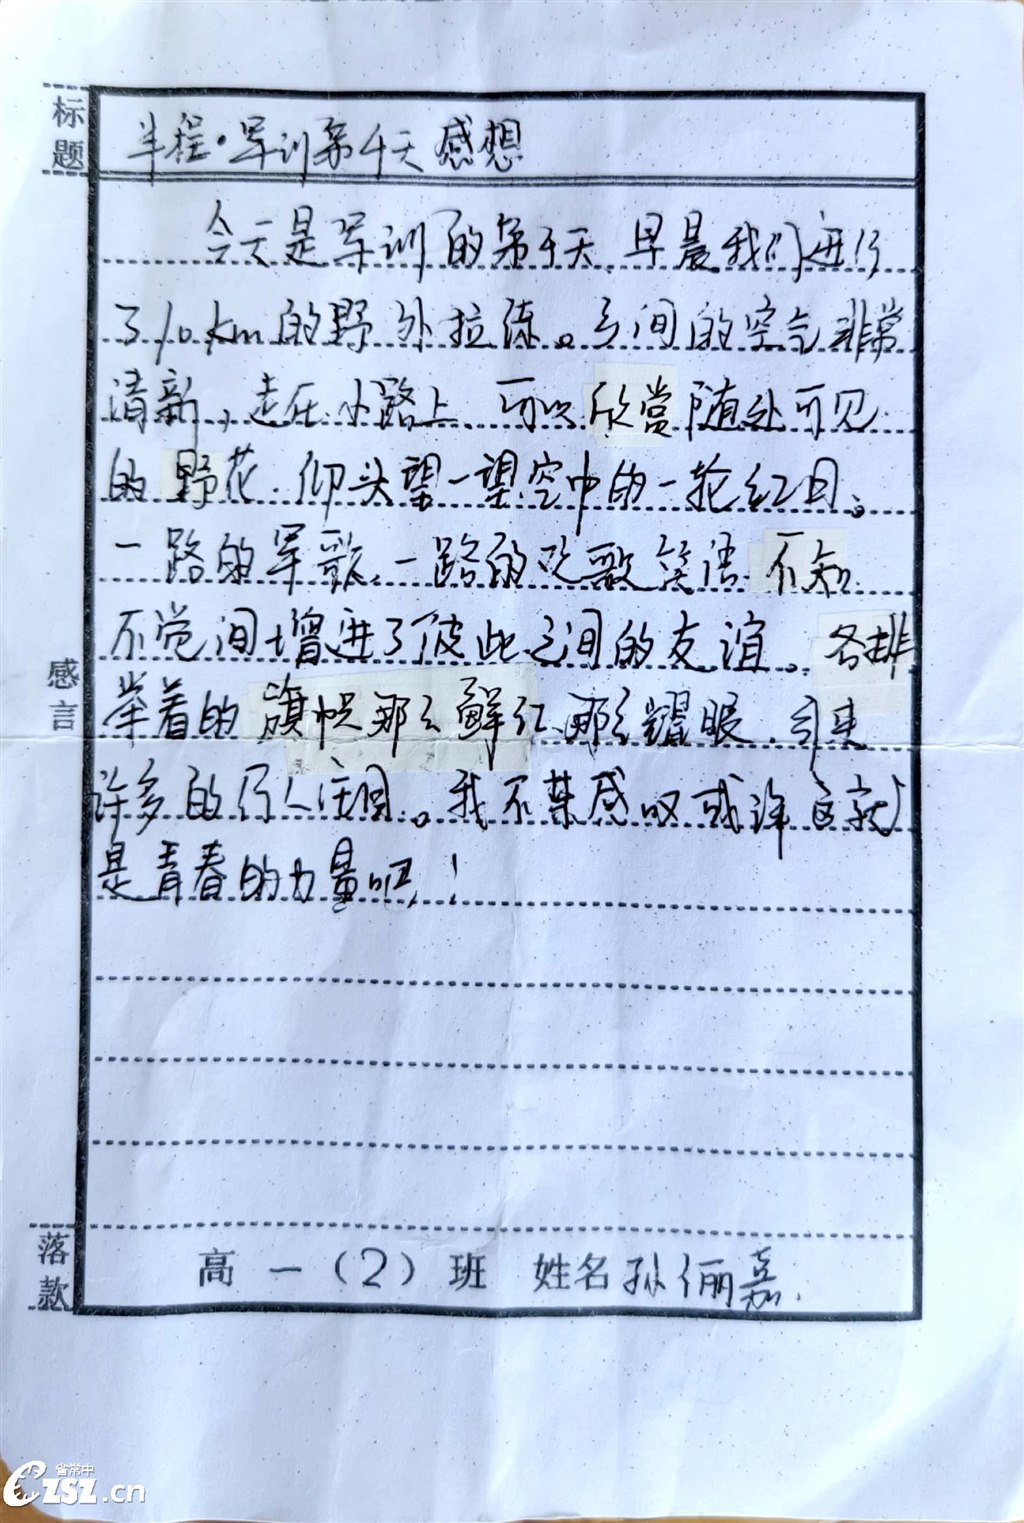 标题
半程·军训第4天感想
今天是军训的第4天,早晨我们进行
了10km的野外拉练。乡间的空气非常
清新,走在小路上,可以欣赏随处可见
的野花,仰头望一望空中的一轮红日。
一路的军歌,一路的欢歌笑语,不知
不觉间增进了彼此之间的友谊。各排
感言
举着的旗帜那么鲜红,那么耀眼,引来
许多的行人注目。我不禁感叹或许这就
是青春的力量吧!
落款
高一(2)班 姓名孙俪嘉
省常中
CZSZ.cn